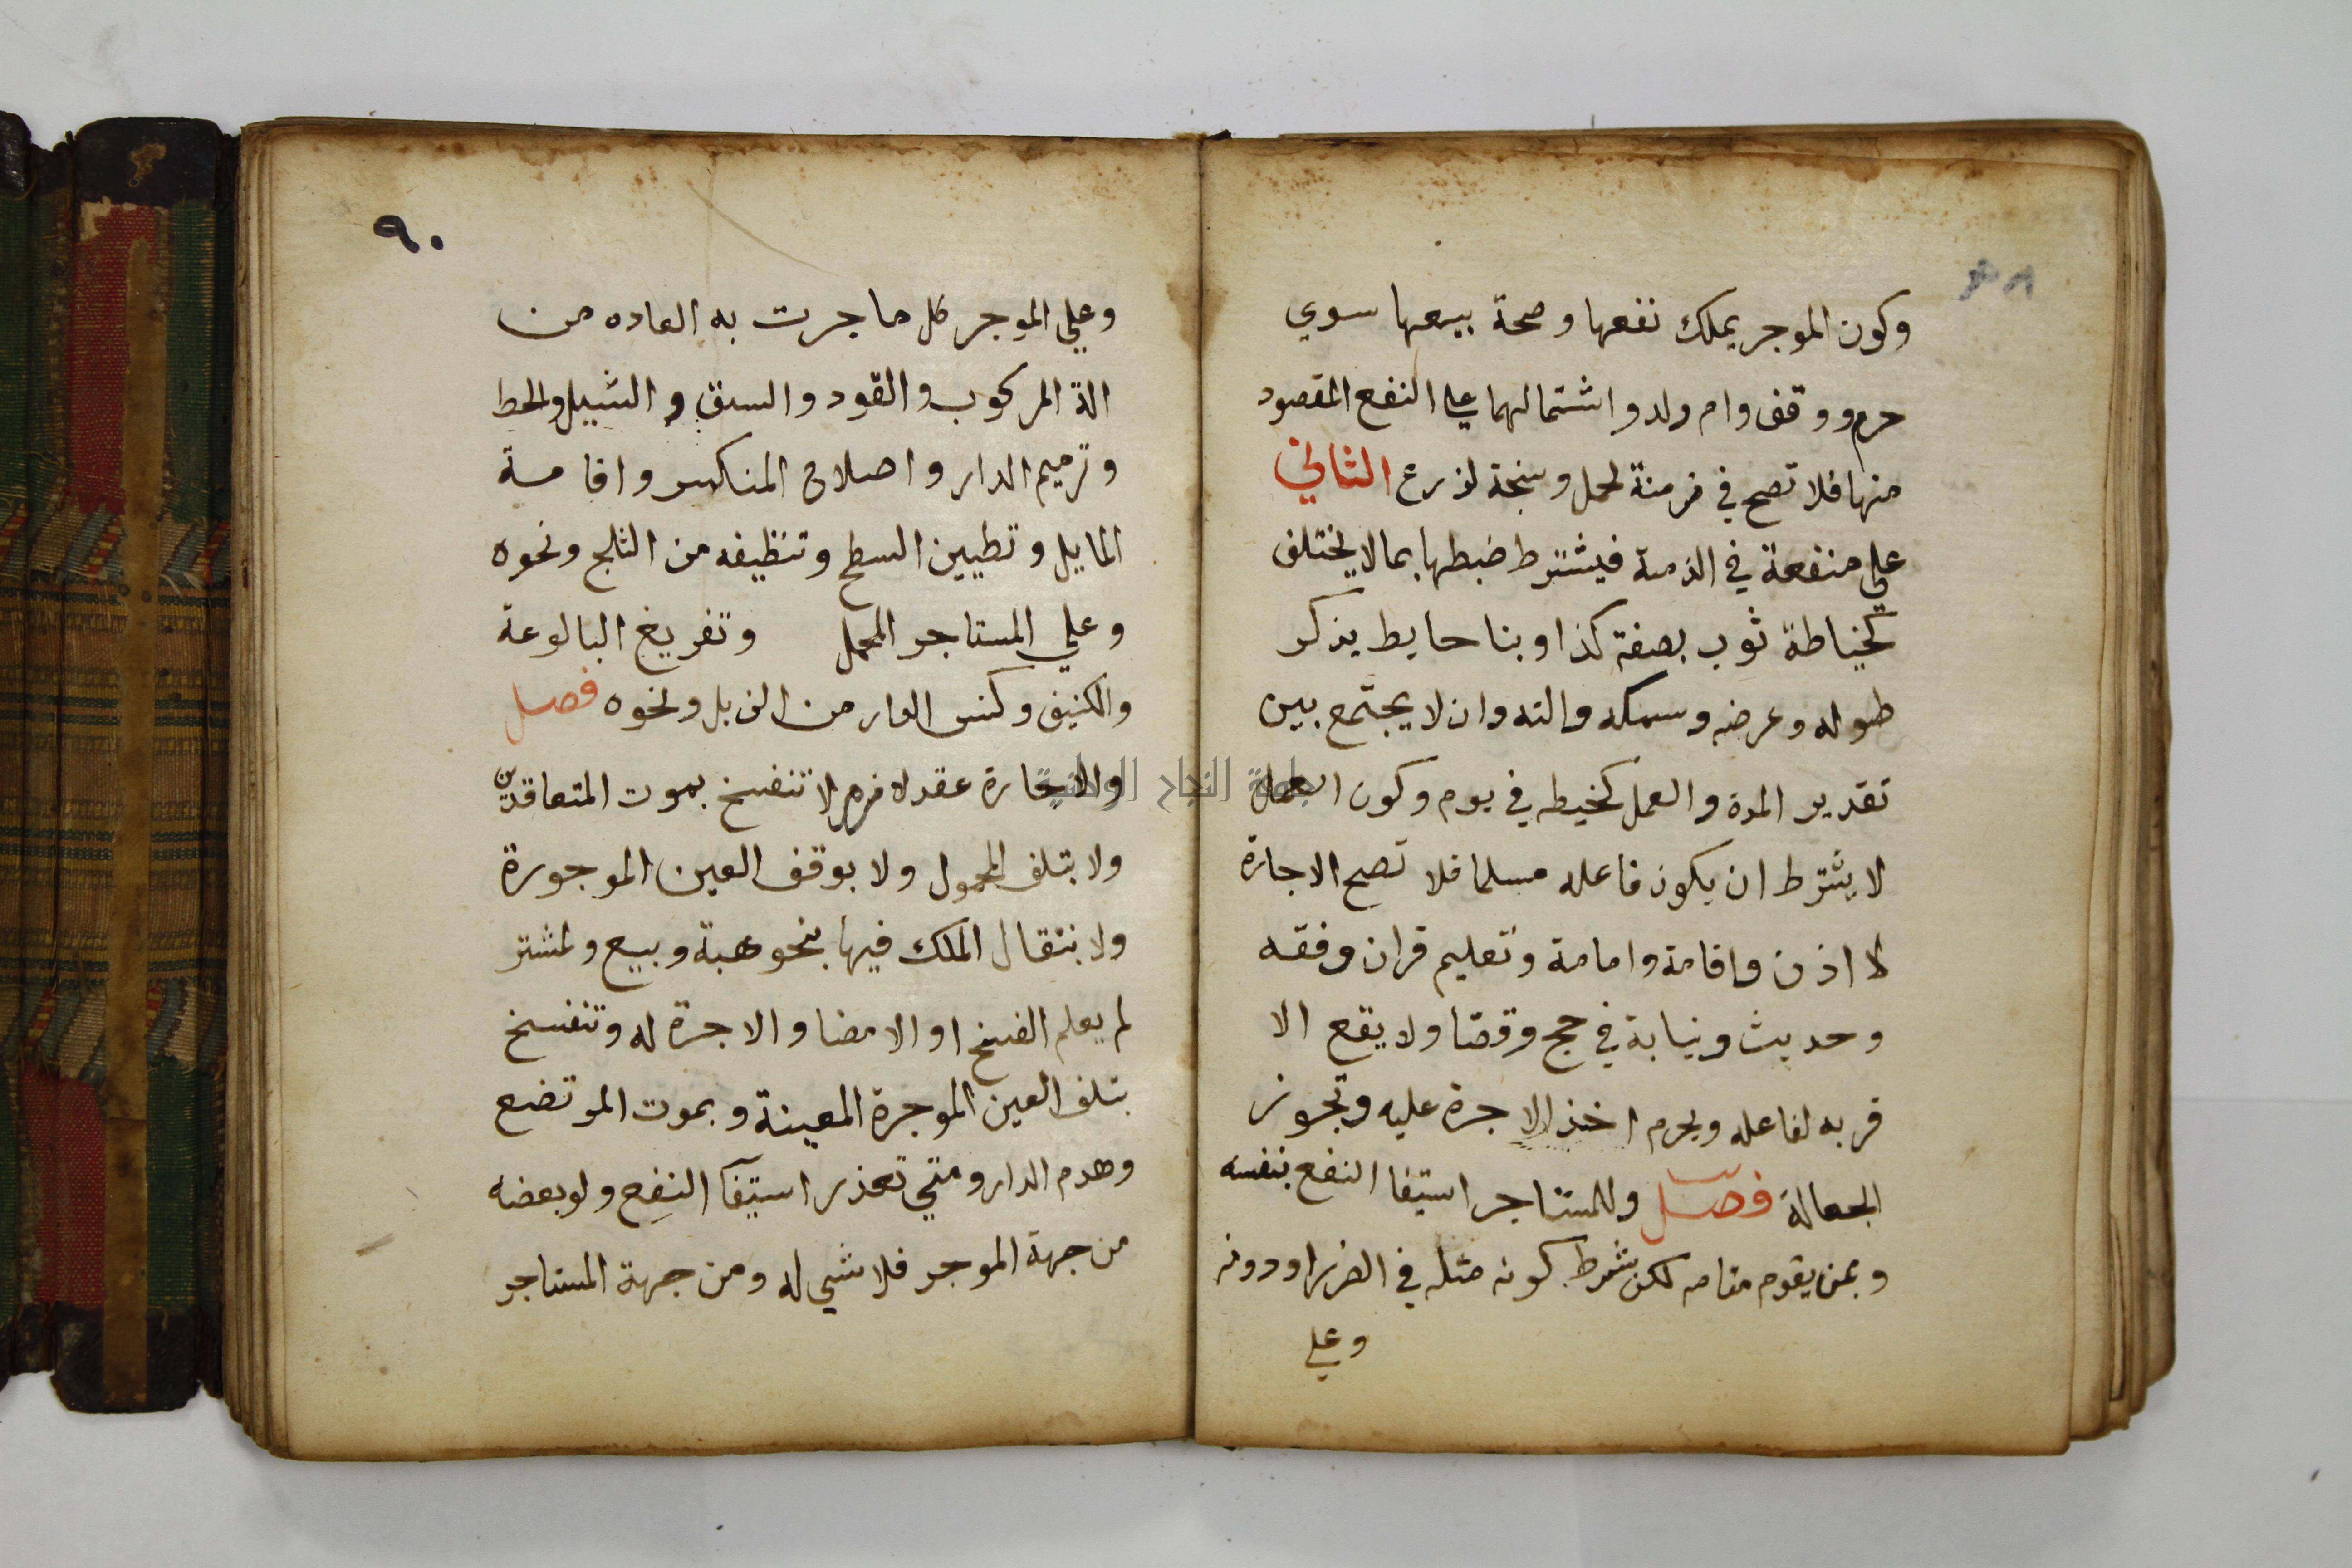 وكون الموجر يملك نفعها وصحة بيعها سوي
حر ووقف وام ولد واشتمالهما علي النفع المقصود
منها فلا تصح في زمنة لحمل وسبخة لزرع الثاني
علي منفعة في الذمة فيشترط ضبطها بما لا يختلف
كخياطة ثوب بصفة كذا وبنا حايط يذكر
طوله وعرضه وسمكه والته وان لا يجتمع بين
تقدير المدة والعمل كخيطه في يوم وكون العمل
لا يشترط ان يكون فاعله مسلما فلا تصح الاجارة
لاذان واقامة وامامة وتعليم قران وفقه
وحديث ونيابة في حج وقضا ولا يقع الا
قربه لفاعله ويحرم اخذ الاجرة عليه وتجوز
الجعالة فصل وللمستاجر استيفا النفع بنفسه
وبمن يقوم مقامه لكن بشرط كونه مثله في الضرر او دونه
وعلي
٩٠
وعلي الموجر كل ما جرت به العاده من
الة المركوب والقود والسوق والشيل والحط
وترميم الدار واصلاح المنكسر واقامة
المايل وتطيين السطح وتنظيفه من الثلج ونحوه
وعلي المستاجر المحمل وتفريغ البالوعة
والكنيف وكنس الدار من الزبل ونحوه فصل
والاجارة عقد لازم لا تنفسخ بموت المتعاقدين
ولا بتلف المحمول ولا بوقف العين الموجورة
ولا بنتقال الملك فيها بنحو هبة وبيع ولمشتر
لم يعلم الفسخ او الامضا والاجرة له وتنفسخ
بتلف العين الموجرة المعينة وبموت المرتضع
وهدم الدار ومتي تعذر استيفآ النفع ولو بعضه
من جهة الموجر فلا شي له ومن جهة المستاجر